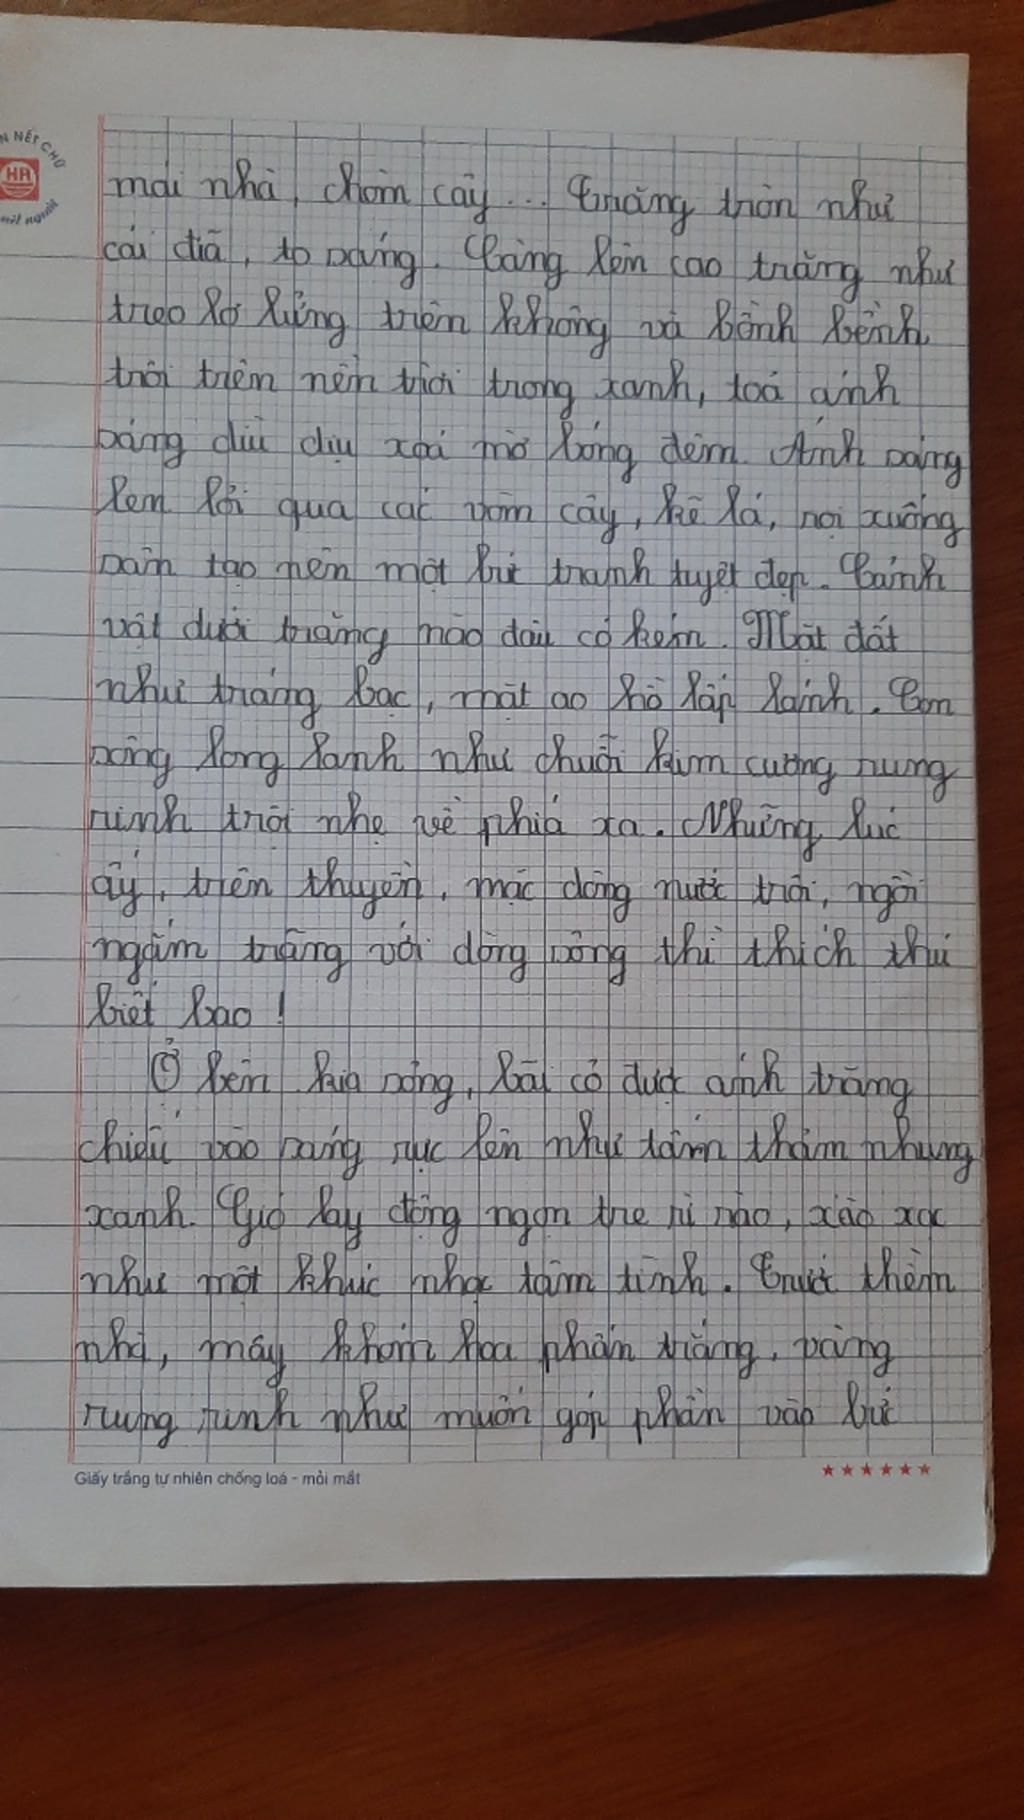 N NÉT CHỮ
HA
nết người
mái nhà, chòm cây... Trăng tròn như
cái đĩa, to sáng. Càng lên cao trăng như
treo lơ lửng trên không và bồnh bềnh
trôi trên nền trời trong xanh, toả ánh
sáng dìu dịu xoá mờ bóng đêm. Ánh sáng
len lỏi qua các vòm cây, kẽ lá, rọi xuống
sân tạo nên một bức tranh tuyệt đẹp. Cảnh
vật dưới trăng nào đâu có kém. Mặt đất
như tráng bạc, mặt ao hồ lấp lánh. Con
sông long lanh như chuỗi kim cương rung
rinh trôi nhẹ về phía xa. Những lúc
ấy, trên thuyền, mặc dòng nước trôi, ngồi
ngắm trăng với dòng sông thì thích thú
biết bao!
Ở bên kia sông, bãi cỏ được ánh trăng
chiếu vào sáng rực lên như tấm thảm nhung
xanh. Gió lay động ngọn tre rì rào, xào xạc
như một khúc nhạc tâm tình. Trước thềm
nhà, mấy khóm hoa phấn trắng, vàng
rung rinh như muốn góp phần vào bức
Giấy trắng tự nhiên chống loá - mỏi mắt